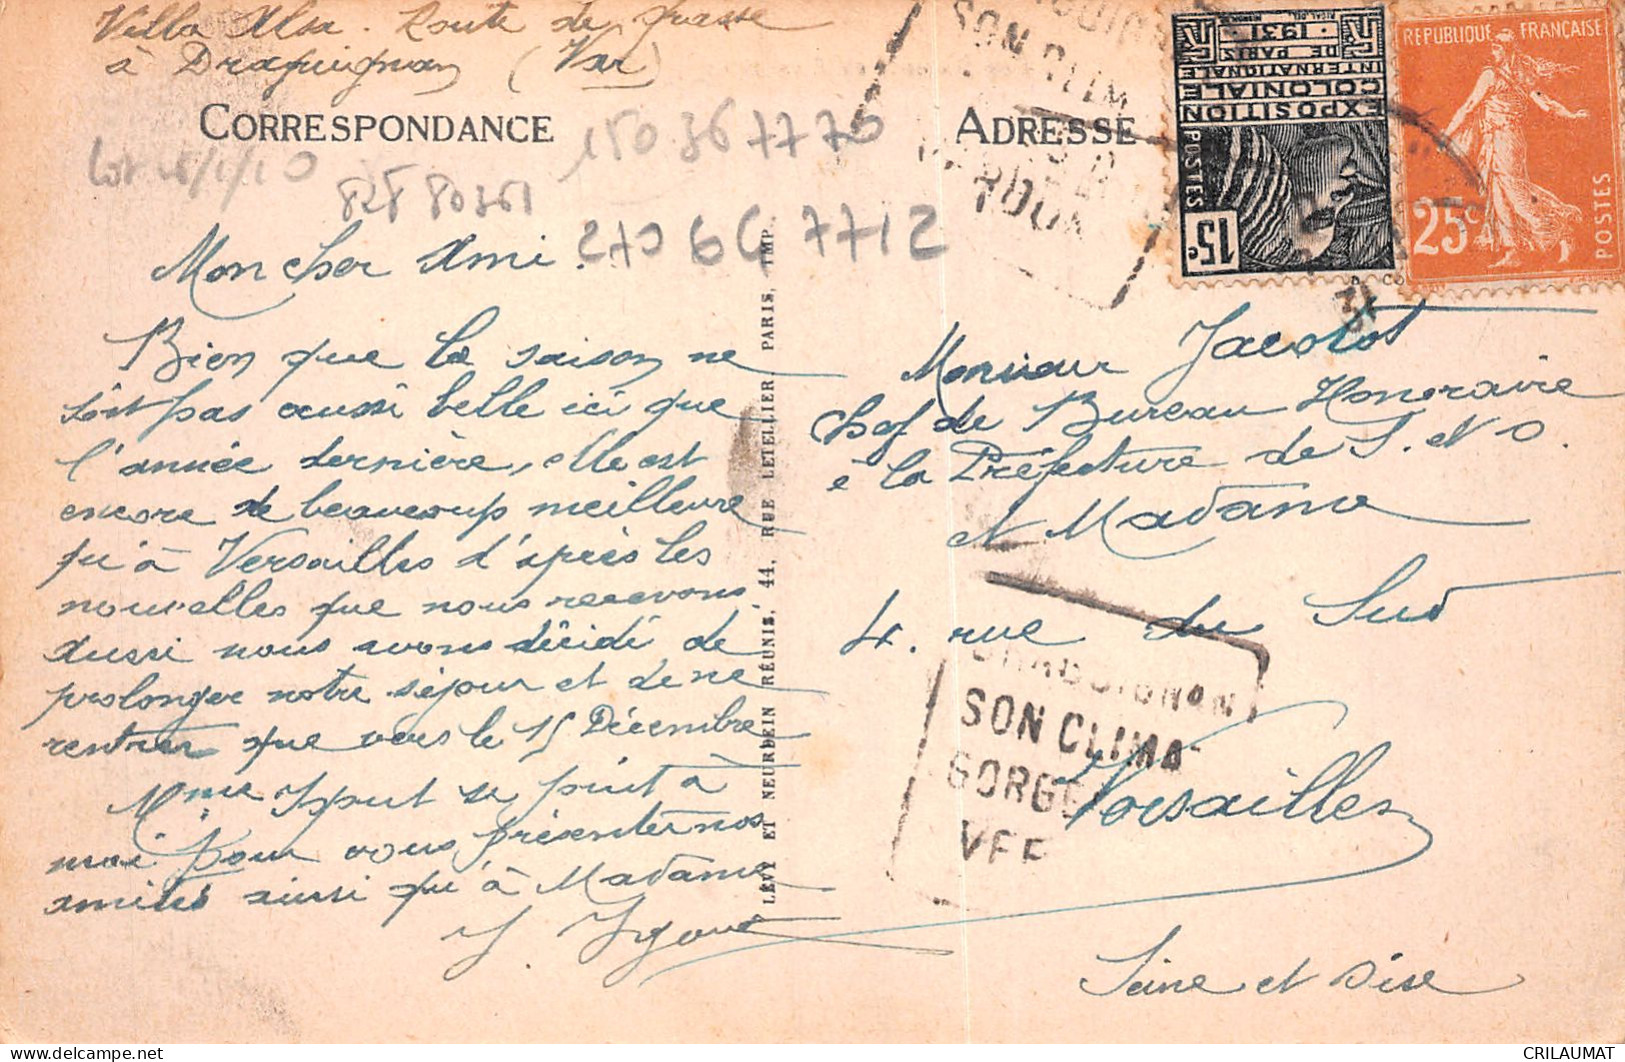 Villa Alba. Route de Grasse
à Draguignan (Var)
CORRESPONDANCE
150 36 7770
Lot
828 80361
270 6 7712
Mon cher Ami.
Bien que la saison ne
soit pas aussi belle ici que
l'année dernière, elle est
encore de beaucoup meilleure
qu'à Versailles d'après les
nouvelles que nous recevons.
Aussi nous avons décidé de
prolonger notre séjour et de ne
rentrer que vers le 15 Décembre
Mme se joint à
moi pour vous présenter nos
amitiés ainsi qu'à Madame
LÉVY ET NEURDEIN RÉUNIS, 44, RUE LETELLIER, PARIS, IMP.
ADRESSE
SON CLIM
EXPOSITION
COLONIALE
INTERNATIONALE
DE PARIS
1931
POSTES
15c
REPUBLIQUE FRANÇAISE
25c
POSTES
Monsieur Jacotot
Chef de Bureau Honoraire
à la Préfecture de S. et O.
et Madame
4. rue du Sud
Versailles
Seine et Oise
DRAGUIGNAN
SON CLIMAT
GORGE
CRILAUMAT